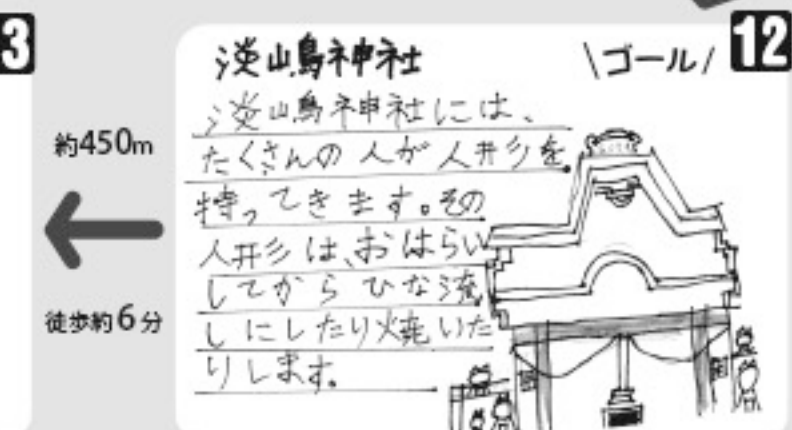 3
約450m
徒歩約6分
12
\ゴール/
淡嶋神社
淡嶋神社には、
たくさんの人が人形を
持ってきます。その
人形は、おはらい
してからひな流
しにしたり焼いた
りします。